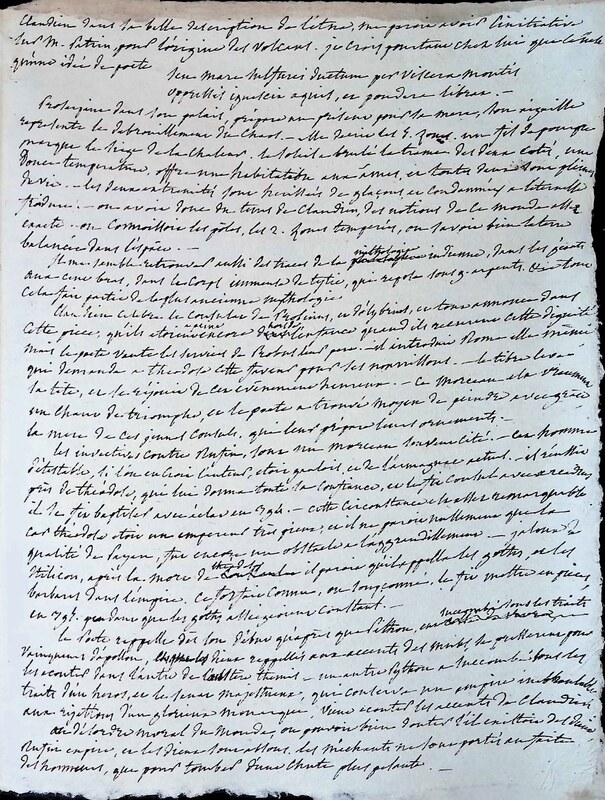 Claudien dans sa belle description de l'etna, me paroit avoir l'initiative
sur M. Patrin, pour l'origine des Volcans. je crois pourtant chez lui que ce n'est
qu'une idée de poete
Seu mare sulfurei ductum per viscera montis
oppressis ignescit aquis, et pondera librat. -
Proserpine dans son palais, prepare un present pour sa mere, son aiguille
represente le debrouillement du Chaos. - elle decrit les 5. Zones. un fil de pourpre
marque le siege de la Chaleur, le soleil a brulé la trame des deux coté, une
douce temperature, offre une habitation aux hommes, et toutes deux sont pleines
de vie. - les deux extremités sont herissées de glaçons, et condamnées a l'eternelle
froidure. - on avoit donc du tems de Claudien, des notions de ce monde assez
exacte. on connoissoit les pôles, les 2. Zones temperées, on savoit bien la terre
balancée dans l'espace. -
Il me semble retrouver aussi des traces de la mythologie indienne, dans les géants
aux cent bras, dans le corps immense de tytie, qui repose sous 9 arpents.
cela fait partie de la plus ancienne mythologie
Claudien celebre le Consulat de Probinus, et d'olybrius, et tout annonce dans
cette piece, qu'ils etoient a peine encore hors l'enfance quand ils reçurent cette dignité
mais le poete vante les services de Probus leur pere. - il introduit Rome elle même
qui demande a theodose cette faveur pour ses nourrissons. - le tibre leve
la tête, et se réjouit de cet évènement heureux. - Ce morceau est vraiment
un chant de triomphe, et le poete a trouvé moyen de peindre avec grace
la mere de ces jeunes Consuls, qui leur prepare leurs ornements. -
les invectives contre Rufin, sont un morceau souvent cité. - cet homme
detestable, si l'on en croit l'auteur, etoit gaulois, et de l'armagnac actuel. - il
près de theodose, qui lui donna toute sa confiance, et le fit Consul
il se fit baptiser avec éclat en 394. - cette circonstance est assez remarquable
car théodose etoit un empereur très pieux, et il ne paroit nullement que la
qualité de Payen, fut encore un obstacle a l'aggrandissement. - jaloux de
Stilicon, après la mort de theodose il paroit qu'il appella les gothes, et les
barbares dans l'empire, ce forfait connu, ou soupçonné, le fit mettre en pieces
en 395. pendant que les gothes assiegeoient Constant. -
le Poete rappelle dès son début qu'après que Python, eut succombé sous les traits
vainqueurs d'apollon, les dieux rappellés aux accents des muses, se presserent pour
les ecouter dans l'antre de themis - un autre Python a succombé sous les
traits d'un heros, et le senat majestueux, qui conserve une empire inébranlable
aux d'un glorieux monarque, vient ecouter les accents de Claudien
au désordre moral du monde, on pouvoit bien douter s'il existoit des dieux
Rufin expire, et les dieux sont absous, les mechants ne sont portés au faite
des honneurs, que pour tomber d'une chute plus pesante. -